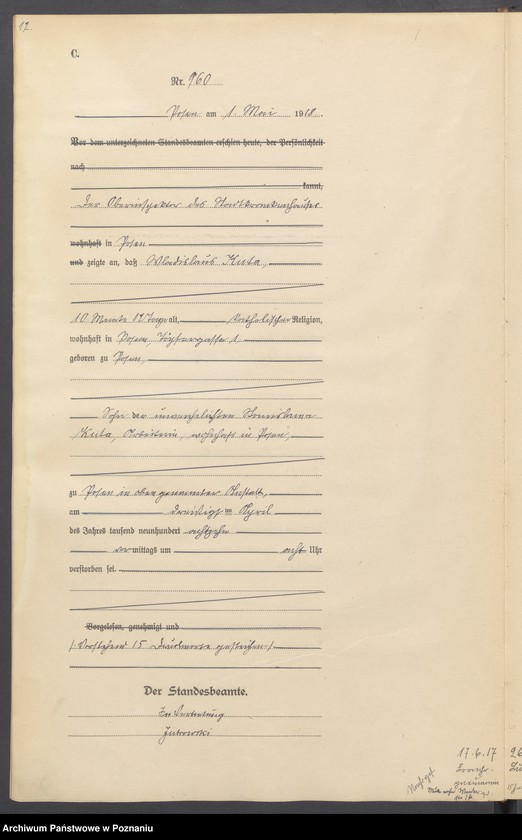 17.
C.
Nr. 960
Posen am 1. Mai 1918.
Vor dem unterzeichneten Standesbeamten erschien heute, der Persönlichkeit
nach
kannt,
Der Oberinspektor des Stadtkrankenhauses
wohnhaft in Posen
und zeigte an, daß Wladislaus Kuta,
10 Monate 12 Tage alt, katholischer Religion,
wohnhaft in Posen, 1,
geboren zu Posen,
Sohn der unverehelichten
Kuta, Arbeiterin, wohnhaft in Posen,
zu Posen in obengenannter Anstalt,
am dreißigsten April
des Jahres tausend neunhundert achtzehn
vormittags um acht Uhr
verstorben sei.
Vorgelesen, genehmigt und
(Vorstehend 15 Druckworte gestrichen)
Der Standesbeamte.
In Vertretung
17.6.17
Archiwum Państwowe w Poznaniu